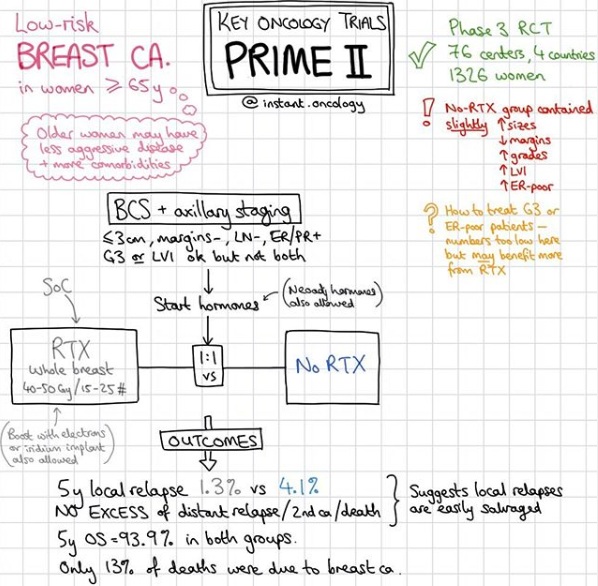 Low-risk
BREAST CA.
in women ≥ 65y
Older women may have
less aggressive disease
+ more comorbidities
KEY ONCOLOGY TRIALS
PRIME II
@instant.oncology
Phase 3 RCT
76 centers, 4 countries
1326 women
! No-RTX group contained
slightly ↑sizes
↓margins
↑grades
↑LVI
↑ER-poor
? How to treat G3 or
ER-poor patients –
numbers too low here
but may benefit more
from RTX
BCS + axillary staging
≤3cm, margins-, LN-, ER/PR+
G3 or LVI ok but not both
Start hormones
(Neoadj hormones
also allowed)
SoC
RTX
Whole breast
40-50Gy/15-25#
1:1
vs
No RTX
(Boost with electrons
or iridium implant
also allowed)
OUTCOMES
5y local relapse 1.3% vs 4.1%
NO EXCESS of distant relapse/2nd ca/death
Suggests local relapses
are easily salvaged
5y OS=93.9% in both groups.
Only 13% of deaths were due to breast ca.